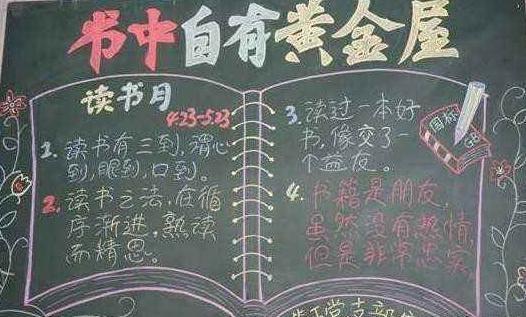 书中自有黄金屋
读书月
4.23-5.23
1. 读书有三到,谓心
到,眼到,口到。
2. 读书之法,在循
序渐进,熟读
而精思。
3. 读过一本好
书,像交了一
个益友。
4. 书籍是朋友,
虽然没有热情,
但是非常忠实。
党支部